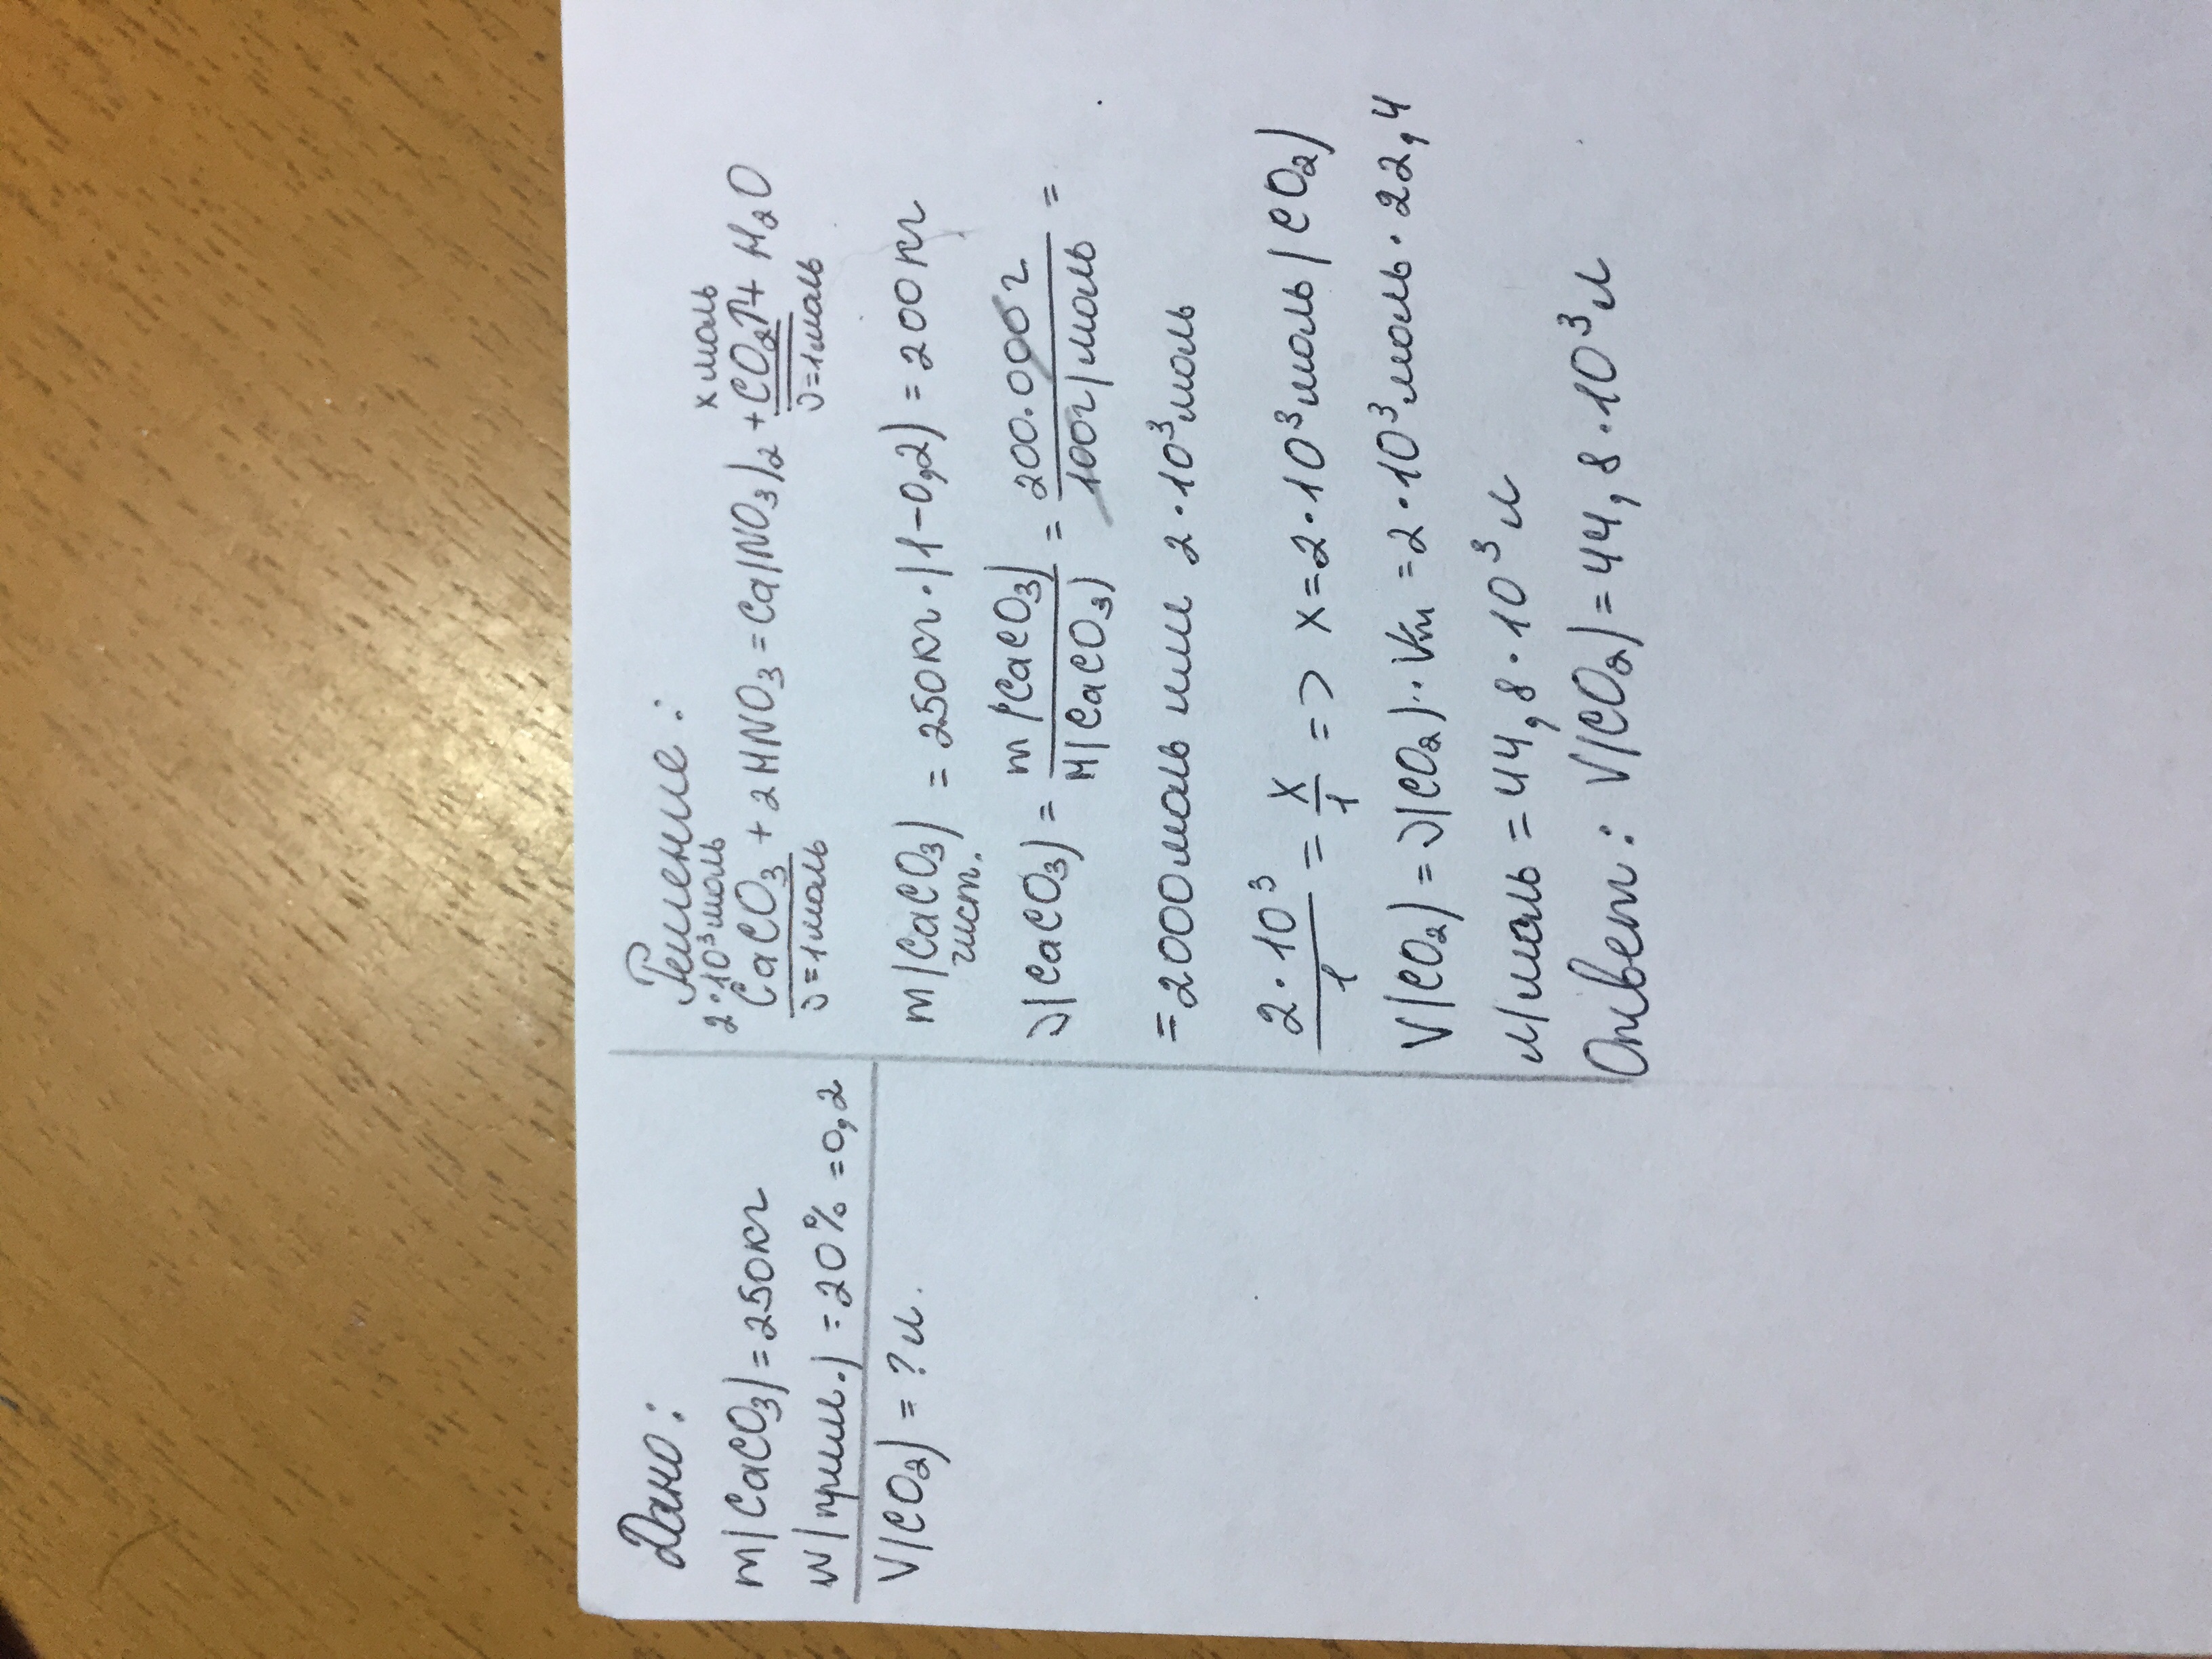 Дано:
m(CaCO₃)=250кг
w(прим.)=20%=0,2
V(CO₂)=?л.
Решение:
2·10³моль х моль
CaCO₃+2HNO₃=Ca(NO₃)₂+CO₂↑+H₂O
ν=1моль ν=1моль
m(CaCO₃)=250кг·(1-0,2)=200кг
чист.
ν(CaCO₃)=m(CaCO₃)/M(CaCO₃)=200.000г/100г/моль=
=2000моль или 2·10³моль
2·10³/1=х/1=> х=2·10³моль(CO₂)
V(CO₂)=ν(CO₂)··Vm=2·10³моль·22,4
л/моль=44,8·10³л
Ответ: V(CO₂)=44,8·10³л